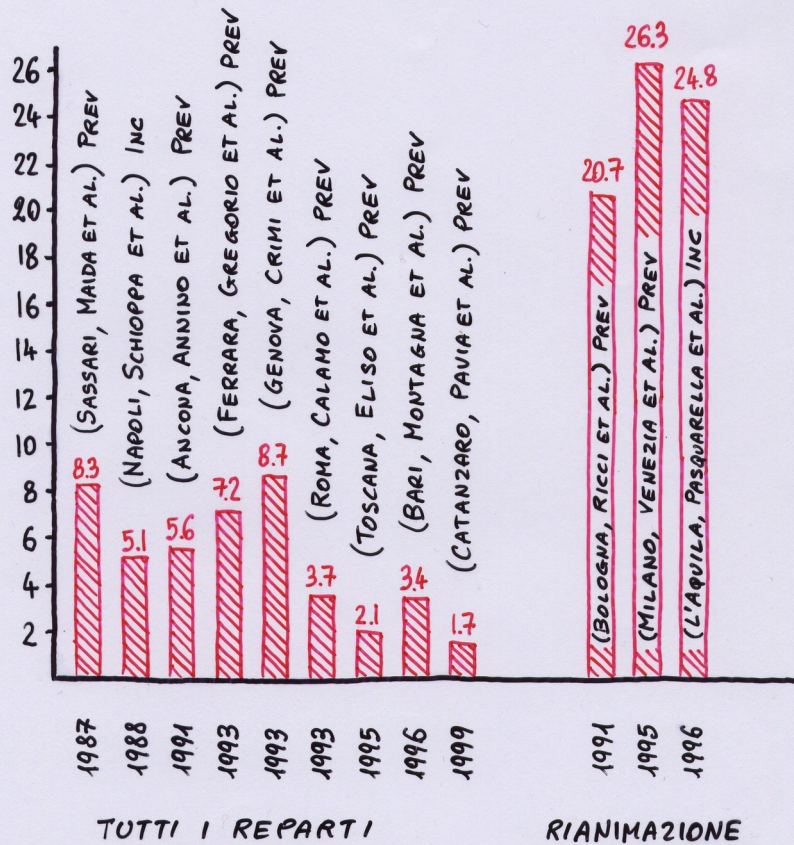 26
24
22
20
18
16
14
12
10
8
6
4
2
8.3
(SASSARI, MAIDA ET AL.) PREV
5.1
(NAPOLI, SCHIOPPA ET AL.) INC
5.6
(ANCONA, ANNINO ET AL.) PREV
7.2
(FERRARA, GREGORIO ET AL.) PREV
8.7
(GENOVA, CRIMI ET AL.) PREV
3.7
(ROMA, CALAMO ET AL.) PREV
2.1
(TOSCANA, ELISO ET AL.) PREV
3.4
(BARI, MONTAGNA ET AL.) PREV
1.7
(CATANZARO, PAVIA ET AL.) PREV
20.7
(BOLOGNA, RICCI ET AL.) PREV
26.3
(MILANO, VENEZIA ET AL.) PREV
24.8
(L'AQUILA, PASQUARELLA ET AL.) INC
1987
1988
1991
1993
1993
1993
1995
1996
1999
1991
1995
1996
TUTTI I REPARTI
RIANIMAZIONE